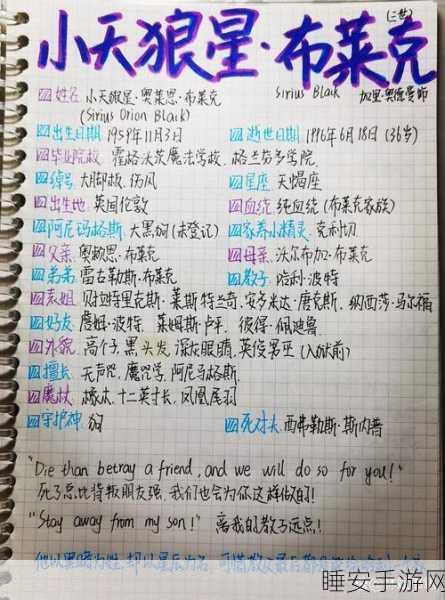 小天狼星·布莱克
(三世)
Sirius Black 加里·奥德曼饰
姓名 小天狼星·奥莱恩·布莱克
(Sirius Orion Black)
出生日期 1959年11月3日 逝世日期 1996年6月18日 (36岁)
毕业院校 霍格沃茨魔法学校 格兰芬多学院
绰号 大脚板 伤风 星座 天蝎座
出生地 英国伦敦 血统 纯血统(布莱克家族)
阿尼玛格斯 大黑狗(未登记) 家养小精灵 克利切
父亲 奥赖恩·布莱克 母亲 沃尔布加·布莱克
弟弟 雷古勒斯·布莱克 教子 哈利·波特
表姐 贝拉特里克斯·莱斯特兰奇 安多米达·唐克斯 纳西莎·马尔福
好友 詹姆·波特 莱姆斯·卢平 彼得·佩迪鲁
外貌 高个子 黑头发 深灰眼睛 英俊男巫(入狱前)
擅长 无声咒 魔咒学 阿尼马格斯
魔杖 橡木 十二英寸长 凤凰尾羽
守护神 狗 死对头 西弗勒斯·斯内普
"Die than betray a friend, and we will do so for you!"
死了总比背叛朋友强,我们也会为你这样做的!
"Stay away from my son!" 离我的教子远点!
他以黑暗为姓 却以星辰为名
睡安手游网